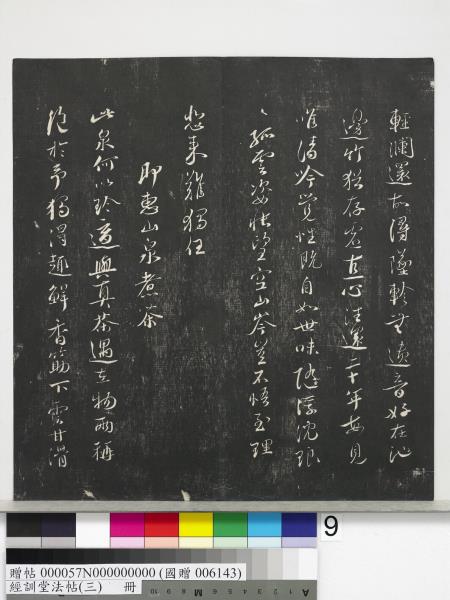 輕瀾還故潯墜軫無遺音好在池
邊竹猶存虛直心往還二十年每見
唯清吟覺性既自如世味隨浮沉琅
〻孤雲姿悵望空山岑豈不悟至理
悲來難獨任
即惠山泉煮茶
此泉何以珍適與真茶遇在物兩稱
絕於予獨得趣鮮香筯下雲甘滑
9
贈帖 000057N000000000 (國贈 006143)
經訓堂法帖(三) 冊